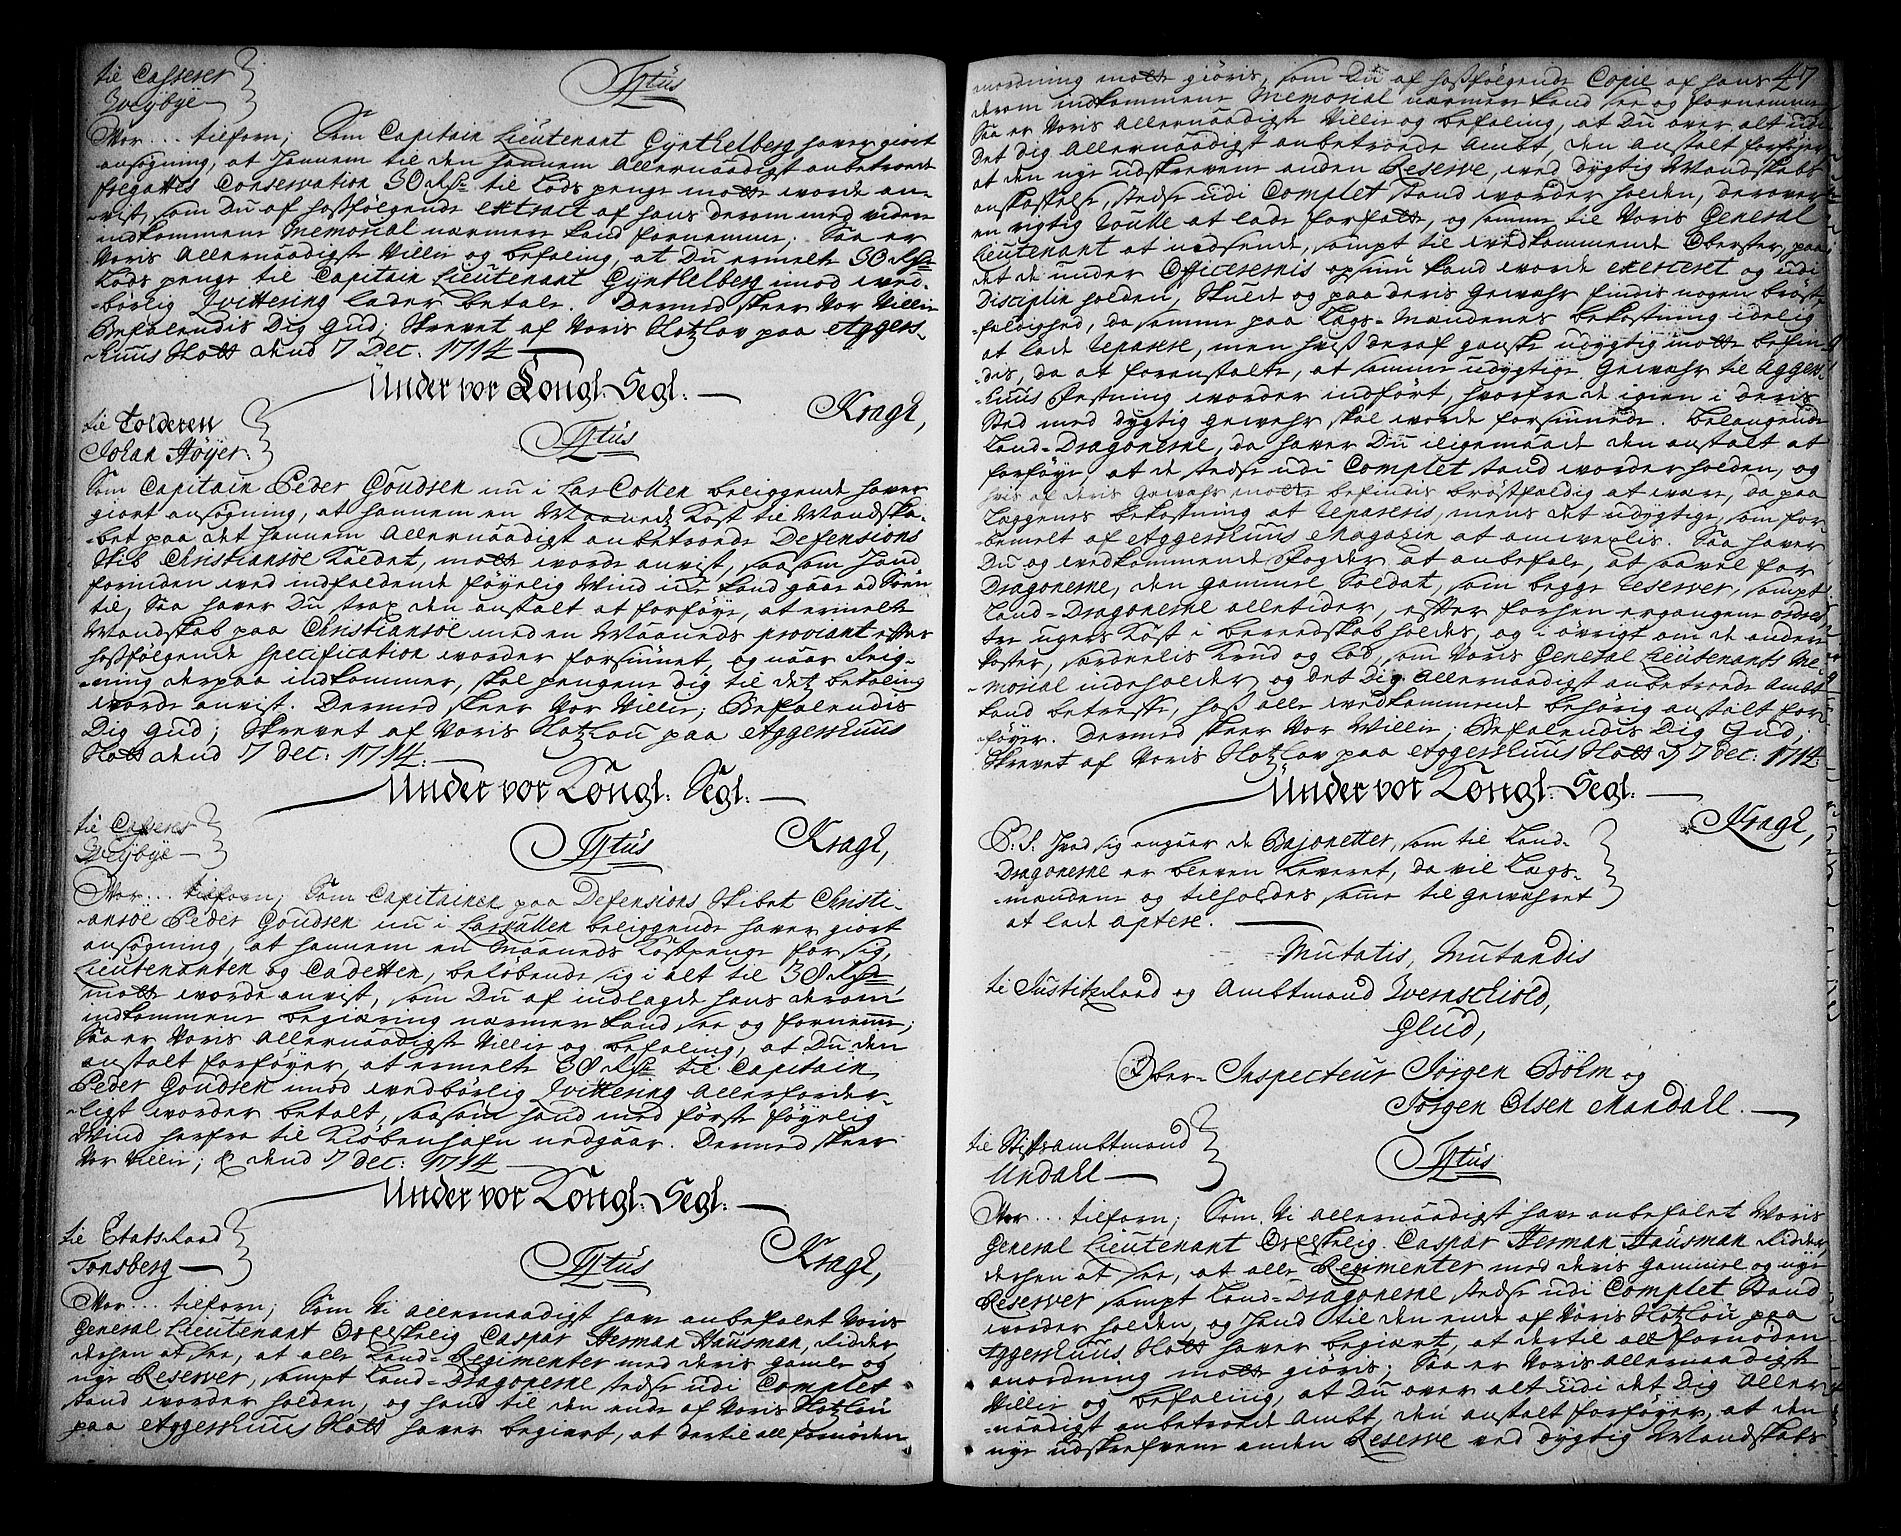 til Casserer
Zveybye
Tÿtus
Vor... tilforn; Som Capitain Lieutenant Gynthelberg haver giort
ansøgning, at hannem til den hannem Allernaadigst anbetroede
fregattes Conservation 30 Rdr til Lods penge motte worde an-
-vist, som Du af hosfølgende extract af hans derom med videre
indkommene Memorial nærmere kand fornemme. Saa er
Voris Allernaadigste Villie og befaling, at Du ermelte 30 Rdr
Lods penge til Capitain Lieutenant Gynthelberg imod wed-
-børlig Qvittering lader betale. Dermed skeer Vor Villie
Befalendis Dig Gud; Skrevet af Voris Slotzlov paa Aggers-
-huus Slott dend 7 Dec: 1714
Under vor Kongl. Segl.
Kragh,
til Tolderen
Johan Høyer.
Tÿtus
Som Capitain Peder Goudsen nu i Lar Collen beliggende haver
giort ansøgning, at hannem en Maaneds Kost til Mandska-
-bet paa det hannem Allernaadigst anbetroede Defensions
Skib Christiansøe kaldet, motte worde anvist, saasom hand
foruden wed indfaldende føyelig Wind icke kand gaae ad Søen
til, Saa haver Du strax den anstalt at forføye, at ermelte
Mandskab paa Christiansøe med en Maaneds proviant efter
hosfølgende specification worder forsiunet, og naar Reig-
-ning derpaa indkommer, skal pengene Dig til det betaling
worde anvist. Dermed skeer Vor Villie; Befalendis
Dig Gud; Skrevet af Voris Slotzlou paa Aggershuus
Slott dend 7 Dec: 1714.
Under vor Kongl. Segl.
Kragh,
til Casserer
Zveybye
Tÿtus
Vor... tilforn; Som Capitainen paa Defensions Skibet Christi-
-ansøe Peder Goudsen nu i Larkullen beliggende haver giort
ansøgning, at hannem en Maaneds Kostpenge for sig,
Lieutenanten og Cadetten, beløbende sig i alt til 38 Rdr
motte worde anvist, som Du af indlagde hans derom
indkommene begiæring nærmere kand see og fornemme;
Saa er Voris Allernaadigste Villie og befaling, at Du den
anstalt forføyer, at ermelte 38 Rdr til Capitain
Peder Goudsen imod wedbørlig Qvittering Allerforder-
-ligst worder betalt, saasom hand med første føyelig
Wind herfra til Kiøbenhafn nedgaar. Dermed skeer
Vor Villie; & dend 7 Dec: 1714
Under vor Kongl. Segl.
Kragh,
til Etats Raad
Tonsberg
Tÿtus
Vor... tilforn; Som Vi allernaadigst have anbefalet Voris
General Lieutenant Velbr Caspar Herman Hausman, Ridder
derhen at see, at alle Land-Regimenter med deris gamle og
nye Reserver, sampt Land-Dragonerne stedse udi Complet
stand worder holden, og hand til den ende af Voris Slotzlou
paa Aggershuus Slott haver begiert, at dertil all fornøden
47
anordning motte giøris, som Du af hosfølgende Copie af hans
derom indkommene Memorial nærmere kand see og fornemme
Saa er Voris Allernaadigste Villie og befaling, at Du over alt udi
det dig Allernaadigst anbetroede Ambt, den anstalt forføyer
at den nye udskrevene anden Reserve, wed dygtig Mandskabs
anskaffelse, stedse udi Complet stand worder holden, derover
en rigtig Roulle at lade forfatte, og samme til Voris General
Lieutenant at nedsende, sampt til wedkommende Oberster, paa
det de under Officerernis opsiun kand worde exerceret og udi
Disciplin holden, Skulde og paa deris Gewæhr findis nogen brøst-
-feldighed, da samme paa Lags-Mændenes bekostning idelig
at lade reparere, men hvis deraf ganske udygtig motte befin-
-dis, da at foranstalte, at samme udygtige Gewæhr til Aggers-
-huus Festning worder indført, hvorfra de igien i deris
Sted med dygtig Gewæhr skal worde forsiunede. Belangende
Land-Dragonerne, da haver Du iligemaade den anstalt at
forføye, at de stedse udi Complet stand worder holden, og
hvis af deris Gewæhr motte befindis brøstfældig at være, da paa
Læggenes bekostning at repareris, mens det udygtige, som for-
-bemelt af Aggershuus Magazin at omvexlis. Saa haver
Du og wedkommende Fogder at anbefale, at saavel for
Dragonerne, den gamle Soldat, som begge reserver, sampt
Land-Dragonerne alletider, efter forhen ergangene ordre
tre ugers Kost i bereedskab holdes, og i øvrigt om de andre
Poster, særdelis Krud og Lod, som Voris General Lieutenants Me-
-morial indeholder og det Dig Allernaadigst anbetroede Ambt
kand betreffe, hos alle wedkommende behørig anstalt for-
-føyer. Dermed skeer Vor Willie; Befalendis Dig Gud;
Skrevet af Voris Slotzlov paa Aggershuus Slott d 7 Dec: 1714
Under vor Kongl. Segl.
Kragh,
P.S. Hvad sig angaar de Bajonetter, som til Land-
Dragonerne er bleven leveret, da vil Lægs-
-mændene og tilholdes samme til gewæhret
at lade aptere.
Mutatis, Mutandis
til Justitz Raad og Ambtmand Wernschiold,
Glud,
Ober-Inspecteur Jørgen Bølm og
Jørgen Olsen Mandahl.
til Stiftsambtmand
Undahl
Tÿtus
Vor... tilforn; Som Vi allernaadigst have anbefalet Voris
General Lieutenant Velbr Caspar Herman Hausman Ridder,
derhen at see, at alle Regimenter med deris gamle og nye
Reserver sampt Land-Dragonerne stedse udi Complet Stand
worder holden, og hand til den ende af Voris Slotzlou paa
Aggershuus Slott haver begiært, at dertil all fornøden
anordning motte giøris; Saa er Voris allernaadigste
Villie og befaling, at Du over alt udi det Dig Aller-
-naadigst anbetroede Ambt, den anstalt forføyer, at den
nye udskrefvene anden Reserve ved dygtig Mandskabs